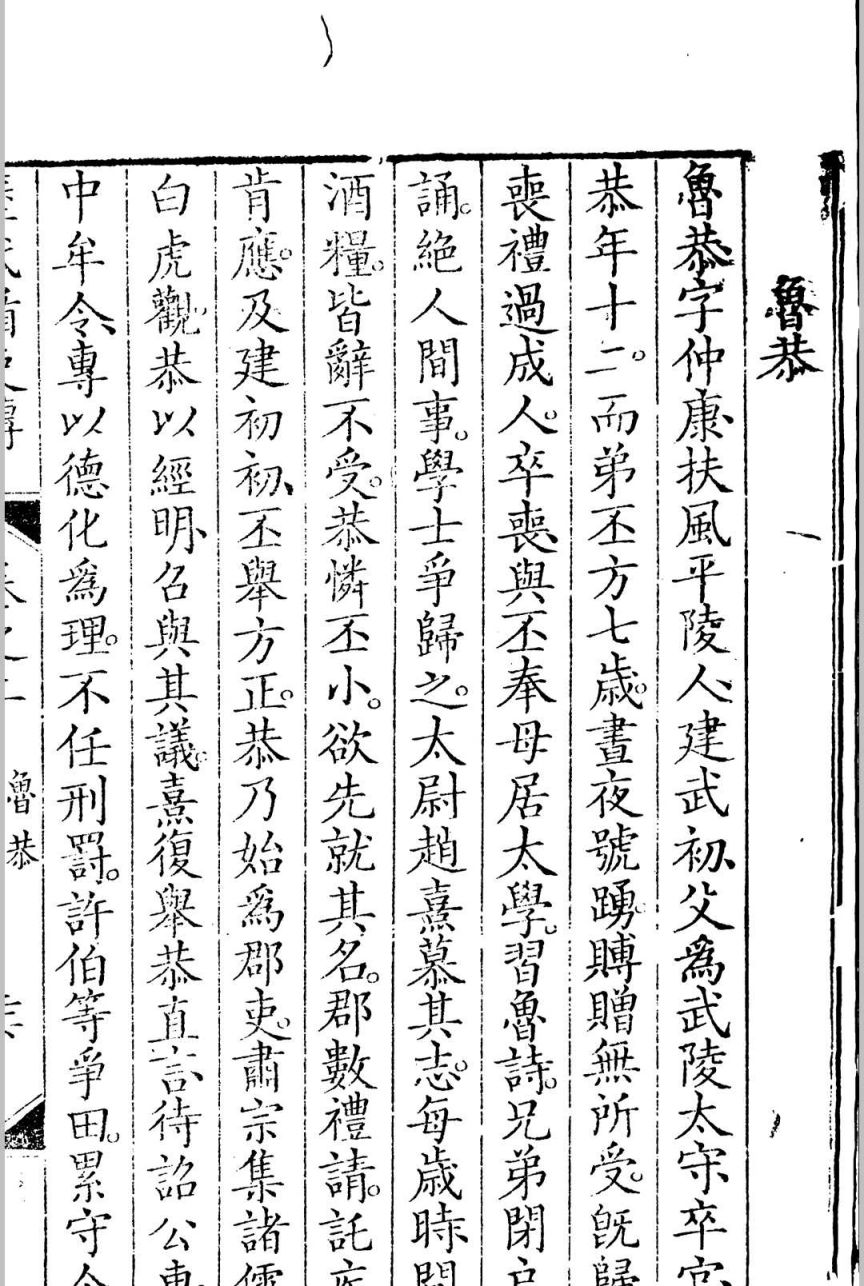 魯恭
魯恭字仲康扶風平陵人建武初父爲武陵太守卒官
恭年十二。而弟丕方七歲。晝夜號踴。賻贈無所受。旣歸
喪禮過成人。卒喪與丕奉母居太學。習魯詩。兄弟閉戶
誦。絕人間事。學士爭歸之。太尉趙熹慕其志。每歲時
酒糧。皆辭不受。恭憐丕小。欲先就其名。郡數禮請。託
肯應。及建初初丕舉方正。恭乃始爲郡吏。肅宗集諸儒
白虎觀。恭以經明召與其議。熹復舉恭直言待詔公車
中牟令專以德化爲理。不任刑罰。許伯等爭田。累守令
魯恭